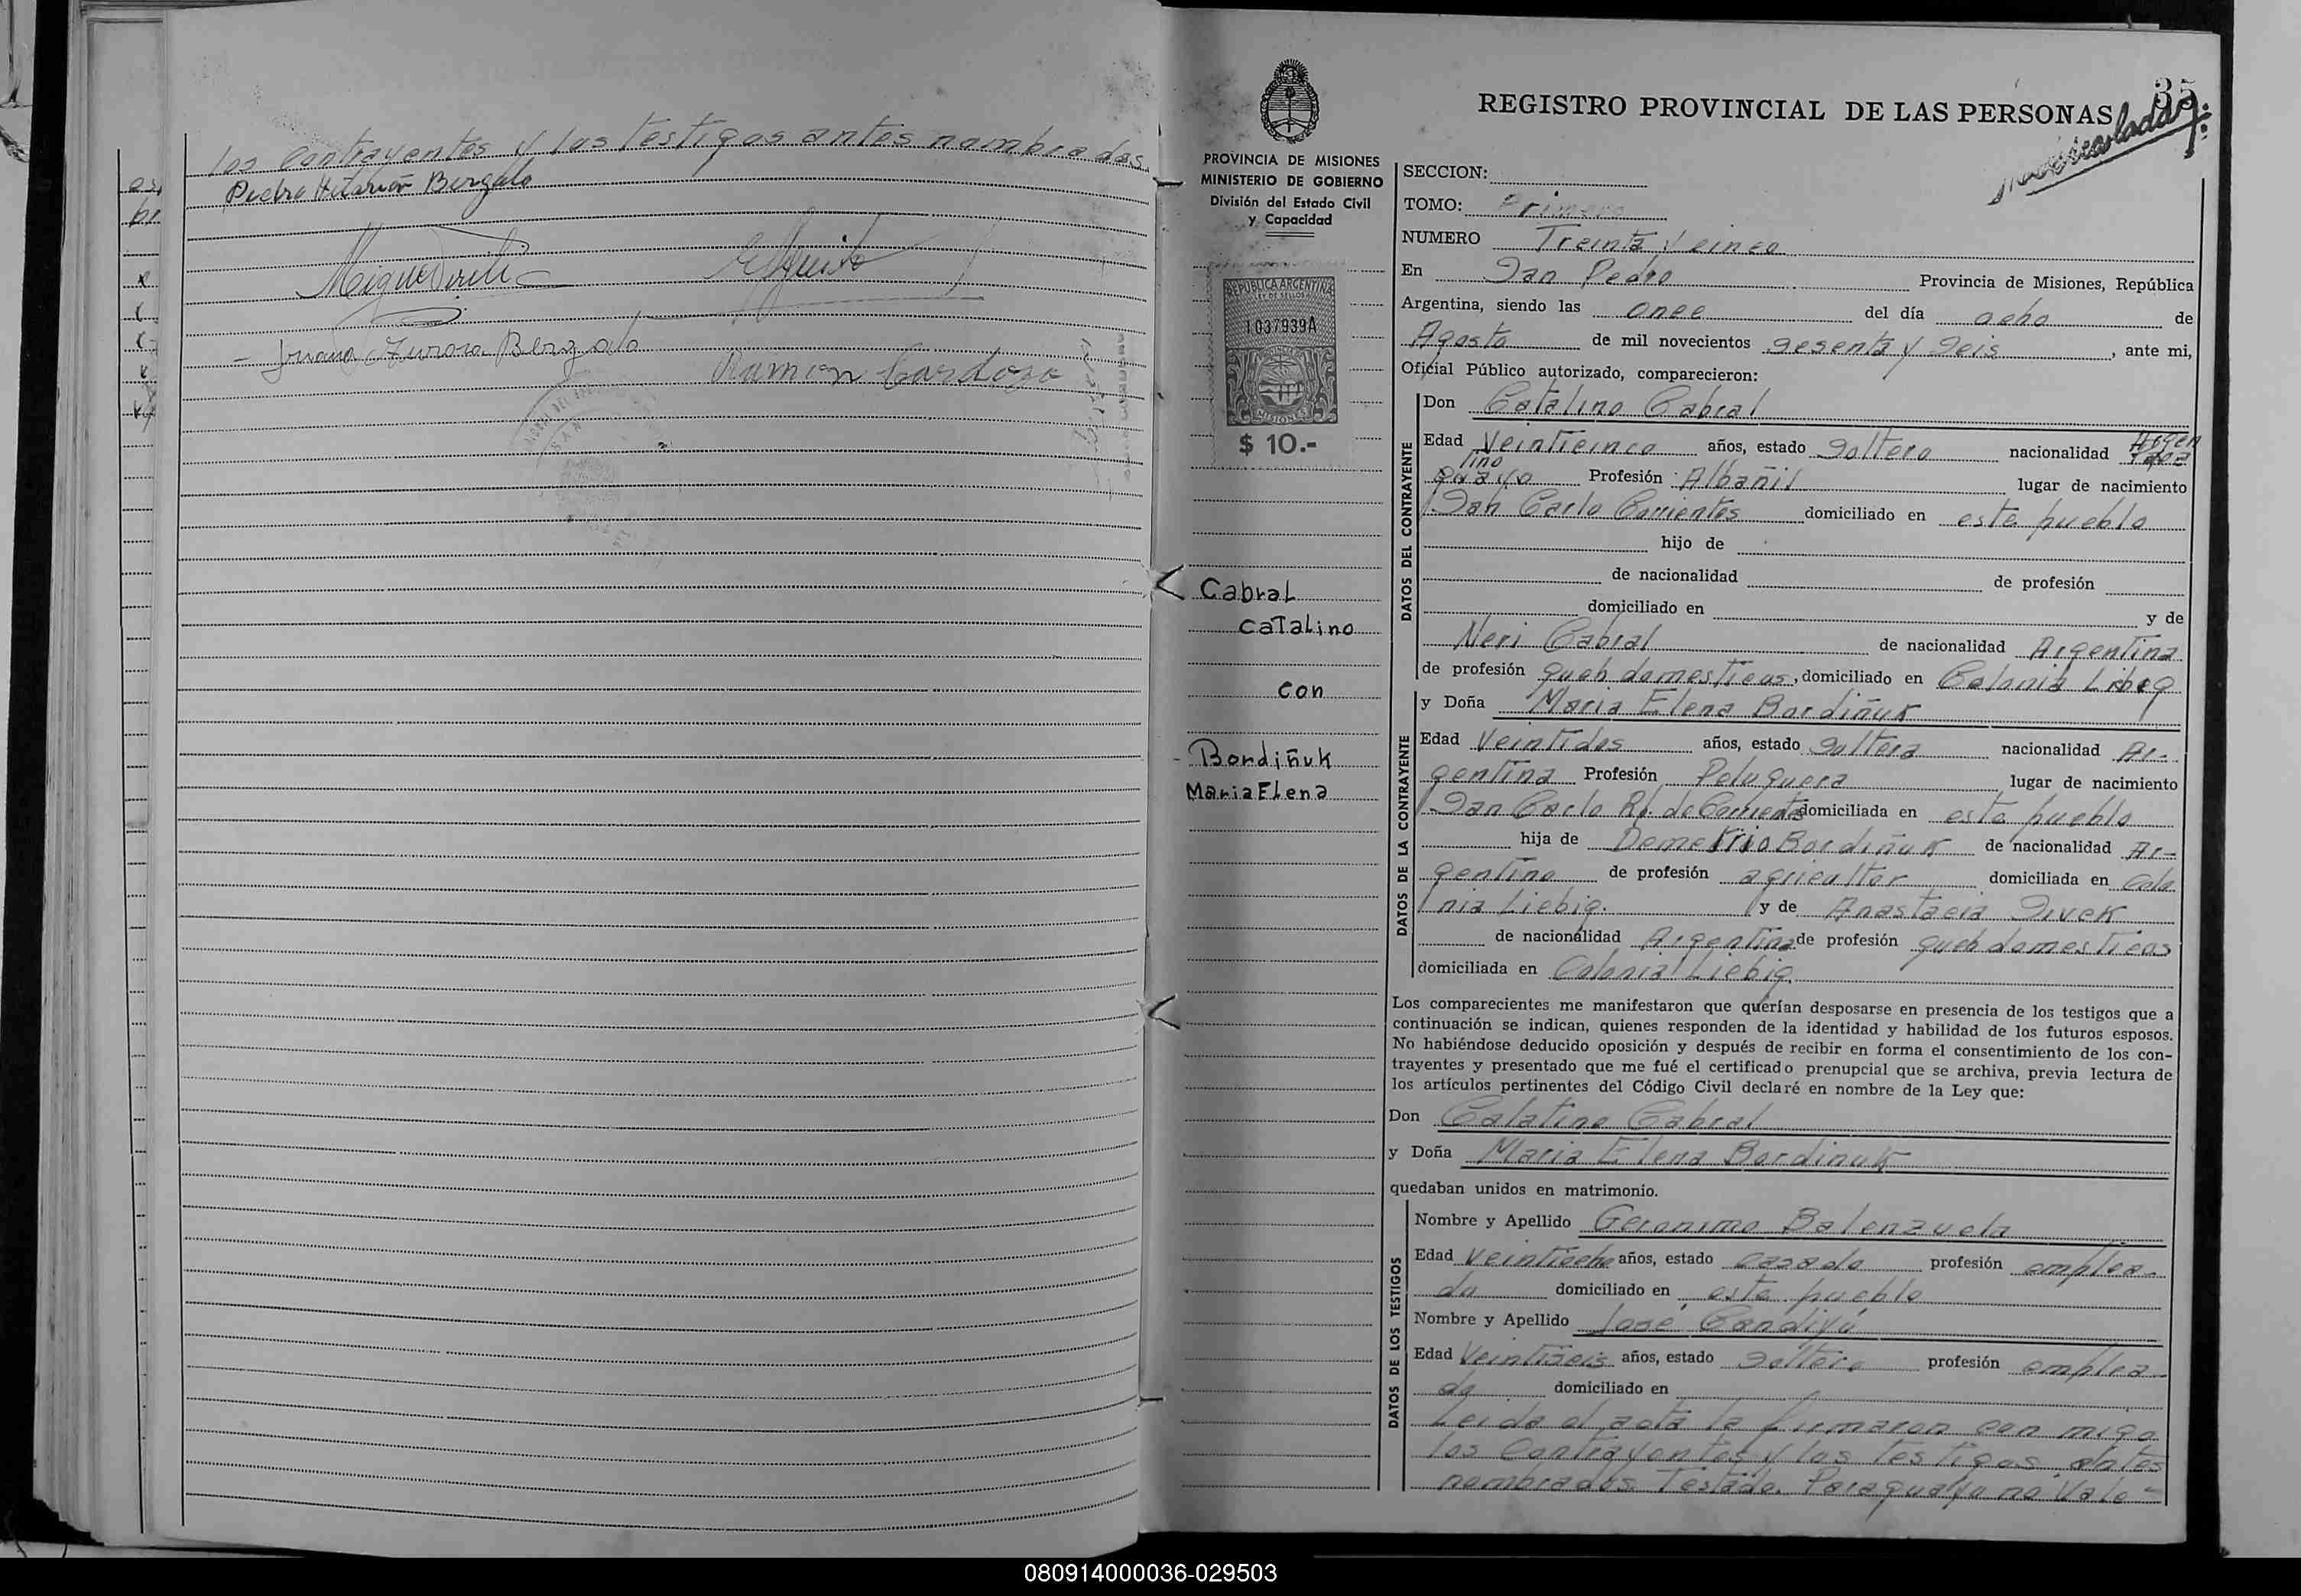 los Contrayentes y los testigos antes nombrados.
Pedro Hilarión Bergalo
Juana Aurora Bergalo
Ramon Cardozo
35
REGISTRO PROVINCIAL DE LAS PERSONAS
PROVINCIA DE MISIONES
MINISTERIO DE GOBIERNO
División del Estado Civil
y Capacidad
REPUBLICA ARGENTINA
LEY DE SELLOS
1037939A
MISIONES
$ 10.-
Cabral
Catalino
con
Bordiñuk
Maria Elena
SECCION:
TOMO: Primero
NUMERO Treinta y cinco
En San Pedro Provincia de Misiones, República
Argentina, siendo las once del día ocho de
Agosto de mil novecientos sesenta y Seis, ante mi,
Oficial Público autorizado, comparecieron:
DATOS DEL CONTRAYENTE
Don Catalino Cabral
Edad Veinticinco años, estado Soltero nacionalidad Argen
tino
guayo Profesión Albañil lugar de nacimiento
San Carlo Corrientes domiciliado en este pueblo
hijo de
de nacionalidad de profesión
domiciliado en y de
Neri Cabral de nacionalidad Argentina
de profesión queh domesticos, domiciliado en Colonia Liebig
DATOS DE LA CONTRAYENTE
y Doña Maria Elena Bordiñuk
Edad Veintidos años, estado Soltera nacionalidad Ar-
gentina Profesión Peluquera lugar de nacimiento
San Carlo de Corrientes domiciliada en este pueblo
hija de Demetrio Bordiñuk de nacionalidad Ar-
gentino de profesión agricultor domiciliada en Colo
nia Liebig. y de Anastacia Sivek
de nacionalidad Argentina de profesión queh domesticos
domiciliada en Colonia Liebig.
Los comparecientes me manifestaron que querían desposarse en presencia de los testigos que a
continuación se indican, quienes responden de la identidad y habilidad de los futuros esposos.
No habiéndose deducido oposición y después de recibir en forma el consentimiento de los con-
trayentes y presentado que me fué el certificado prenupcial que se archiva, previa lectura de
los artículos pertinentes del Código Civil declaré en nombre de la Ley que:
Don Calatino Cabral
y Doña Maria Elena Bordinuk
quedaban unidos en matrimonio.
DATOS DE LOS TESTIGOS
Nombre y Apellido Geronimo Balenzuela
Edad Veintiocho años, estado casado profesión emplea-
do domiciliado en este pueblo
Nombre y Apellido José Candiyú
Edad Veintiseis años, estado Soltero profesión emplea-
do domiciliado en
Leida el acta la firmaron con migo
los Contrayentes y los testigos antes
nombrados. Testado. Paraguayo no Vale-
080914000036-029503